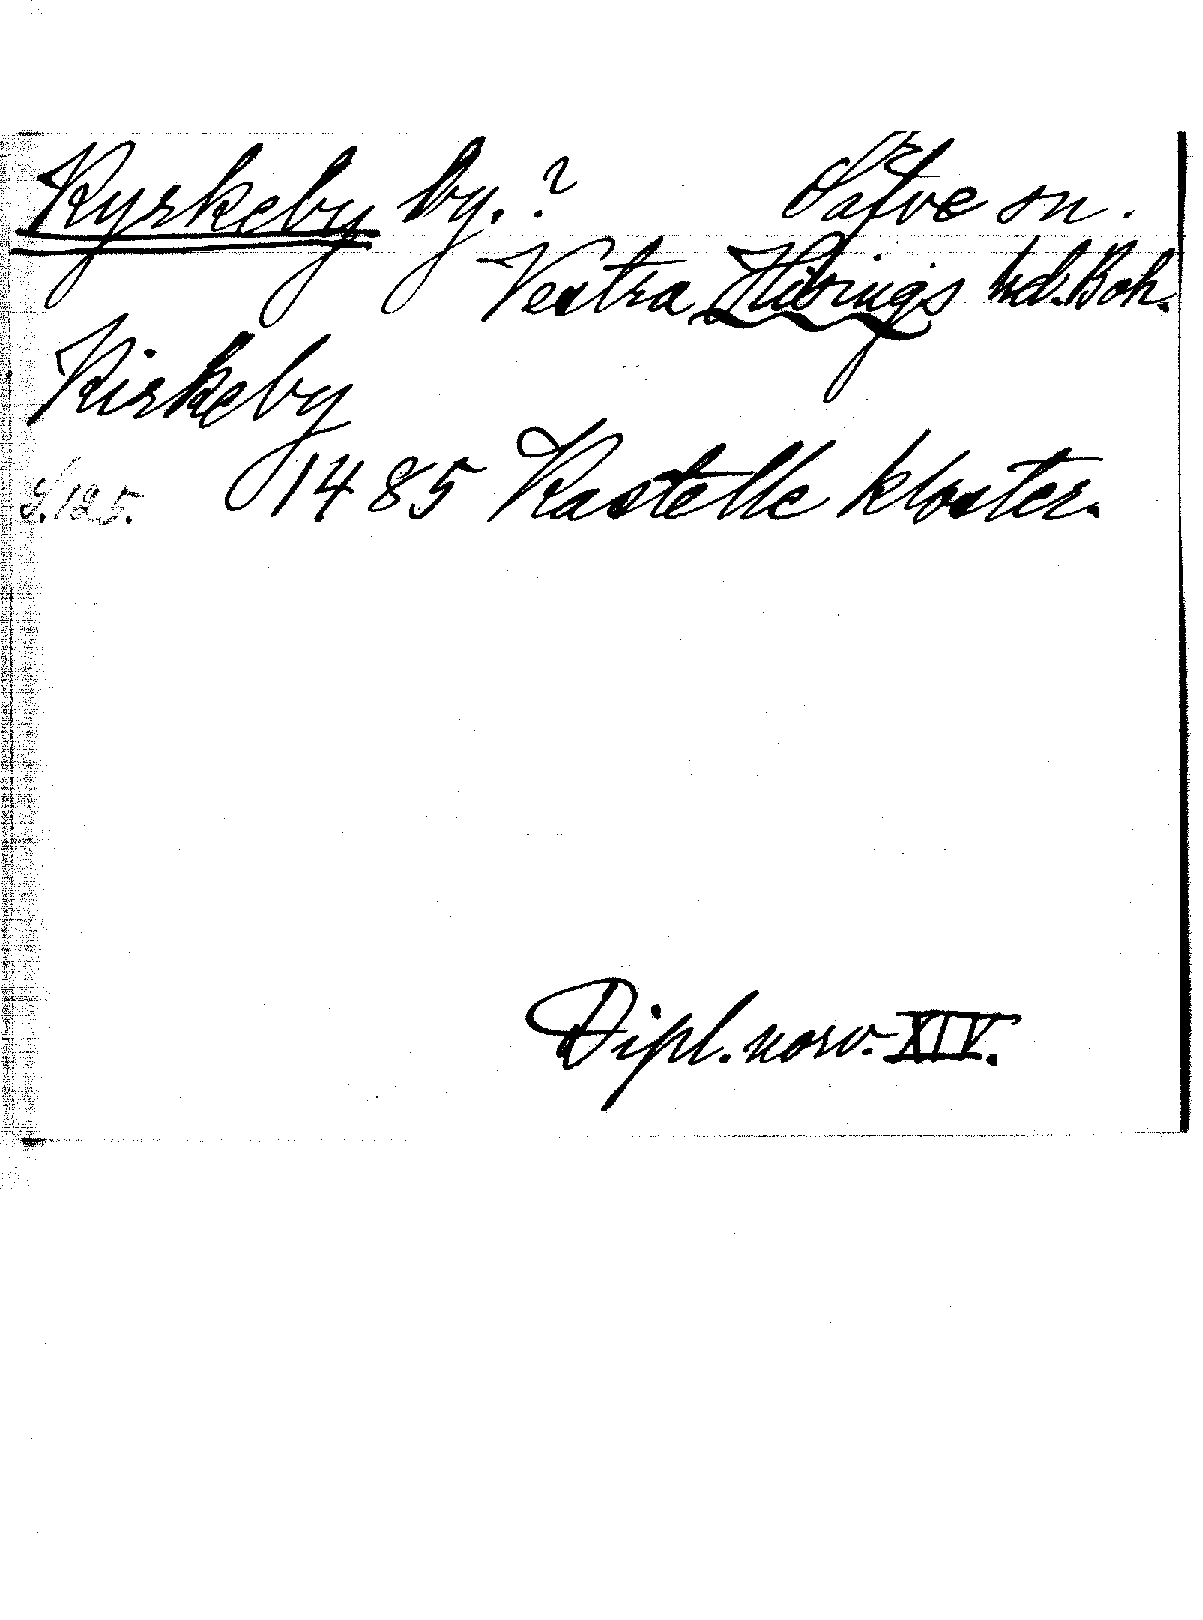 Kyrkeby by.? Sätve sn.
Vestra Hisings hd. Boh.
Kirkeby
S. 125. 1485 Kastelle kloster.
Dipl. norv. XIV.